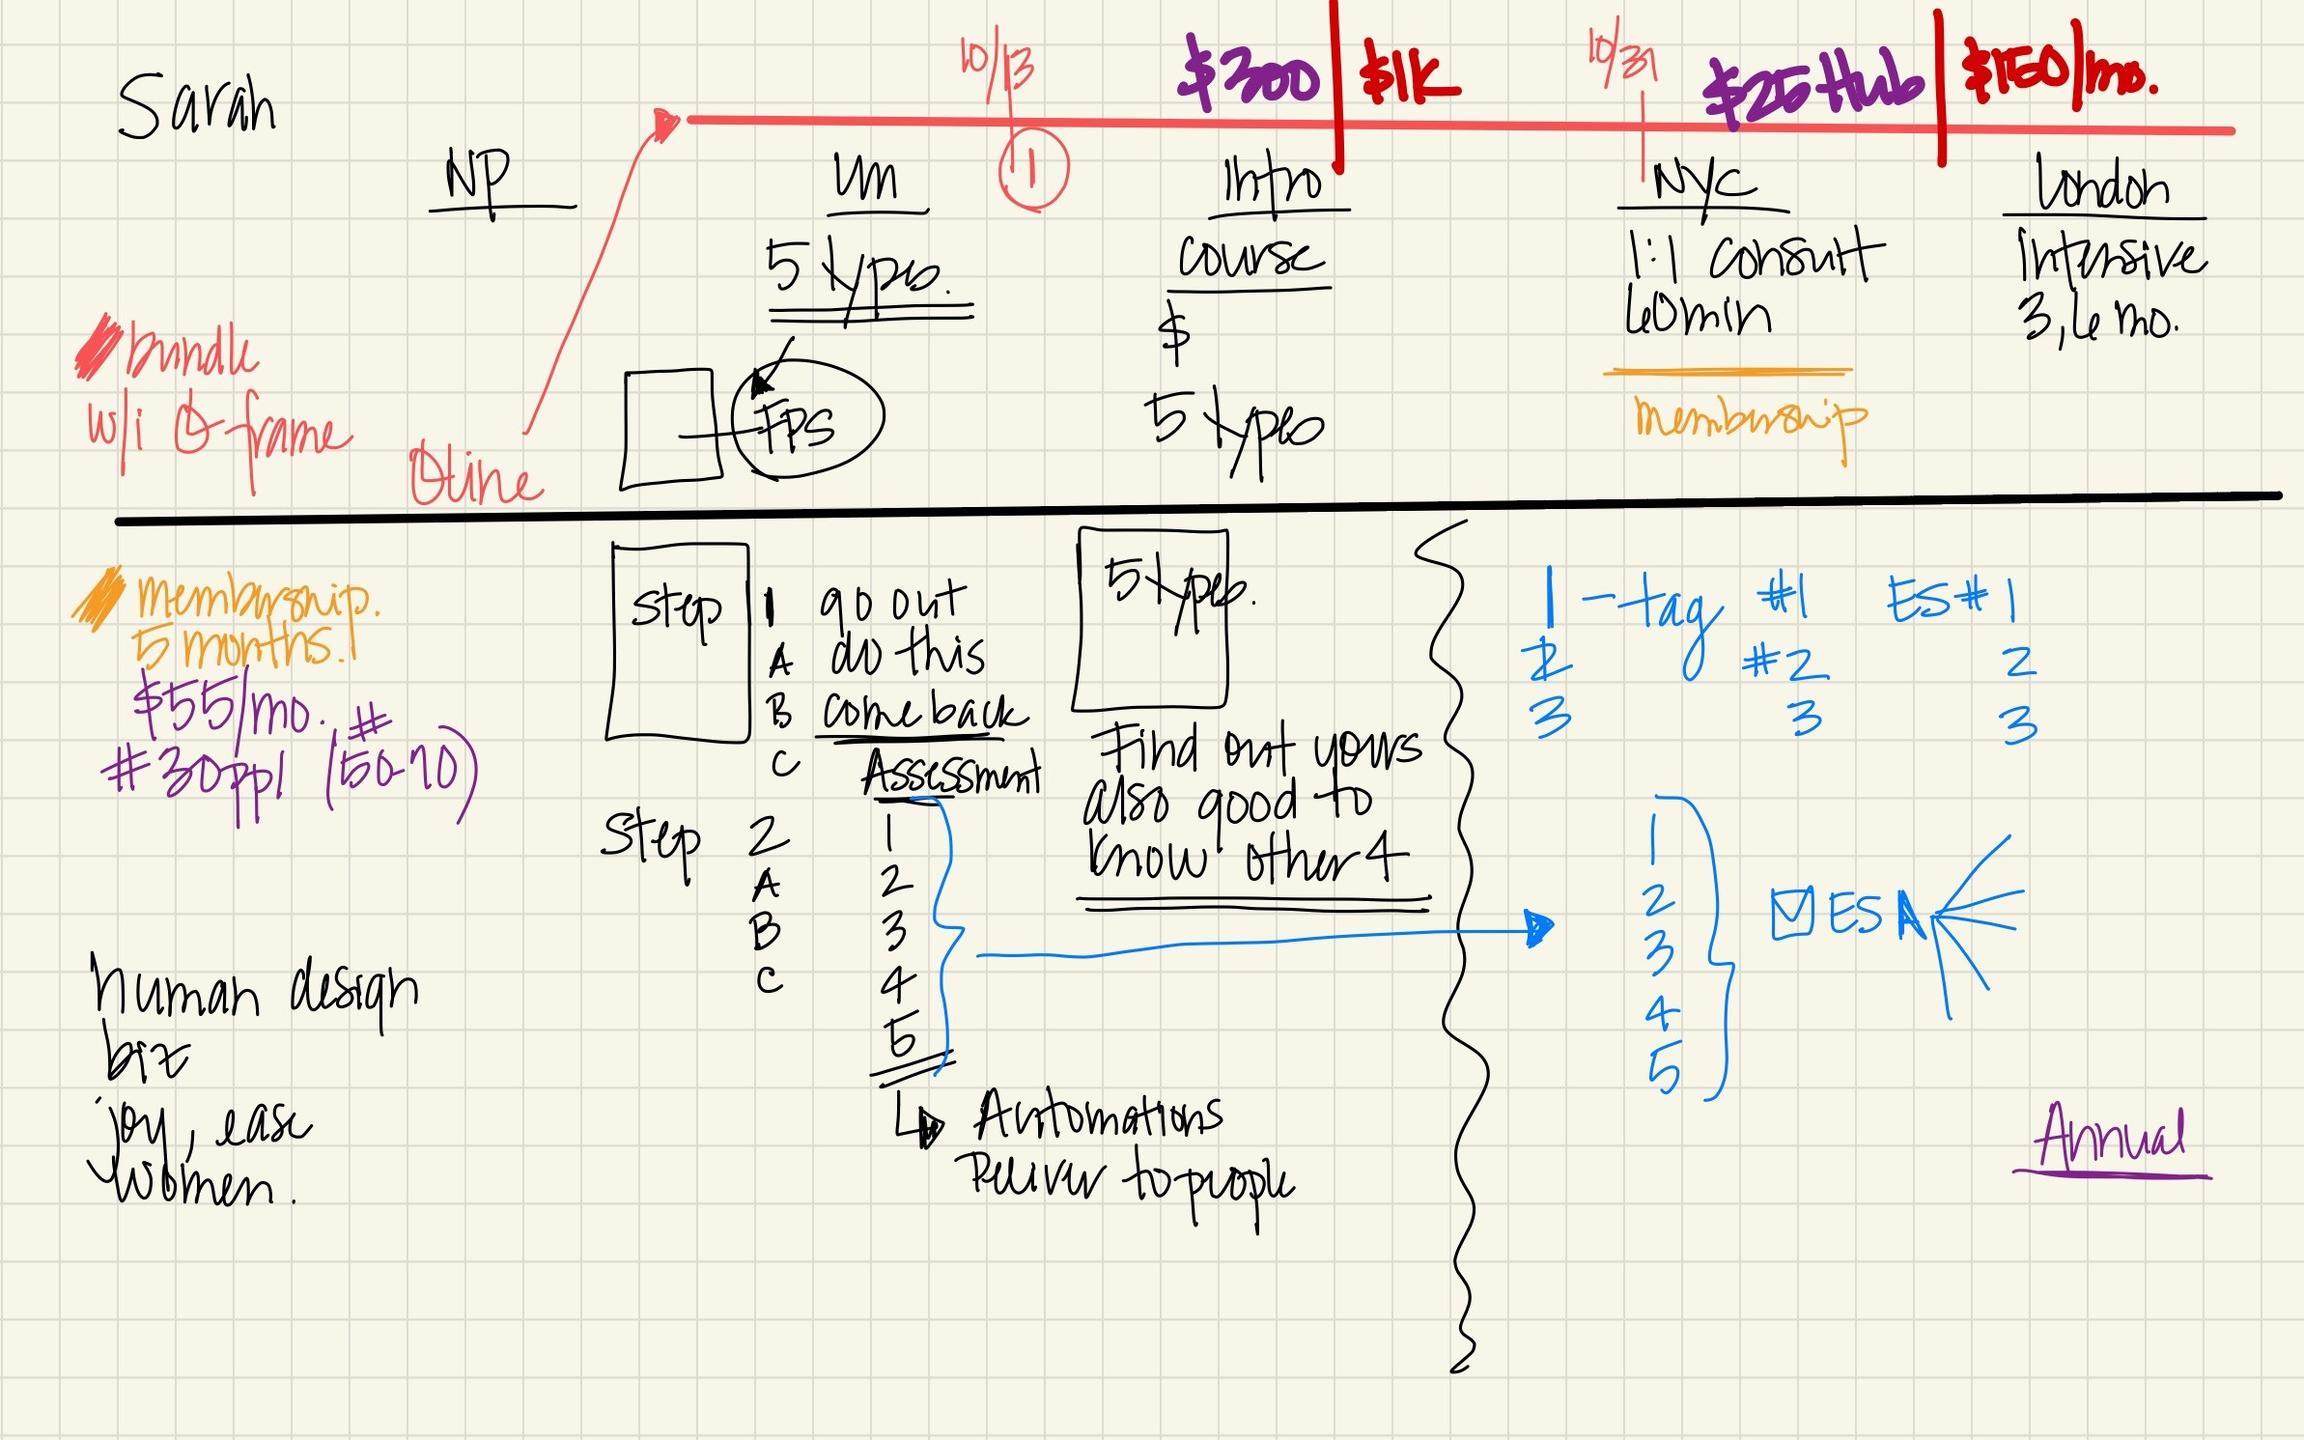 Sarah
10/13
$300 | $1K
10/31
$25 Hub | $150/mo.
NP
LM
1
Intro
NYC
London
5 types.
course
1:1 consult
Intensive
$
60min
3, 6 mo.
bundle
w/i
frame
FPS
5 types
membership
membership.
5 months.
$55/mo.
#
#30ppl (50-70)
Step 1 go out
A do this
B come back
C Assessment
Step 2 1
A 2
B 3
C 4
5
Automations
Deliver to people
5 types.
Find out yours
also good to
know other 4
1 - tag #1 ES #1
2 #2 2
3 3 3
1
2
3
4
5
ES
human design
biz
joy, ease
women.
Annual